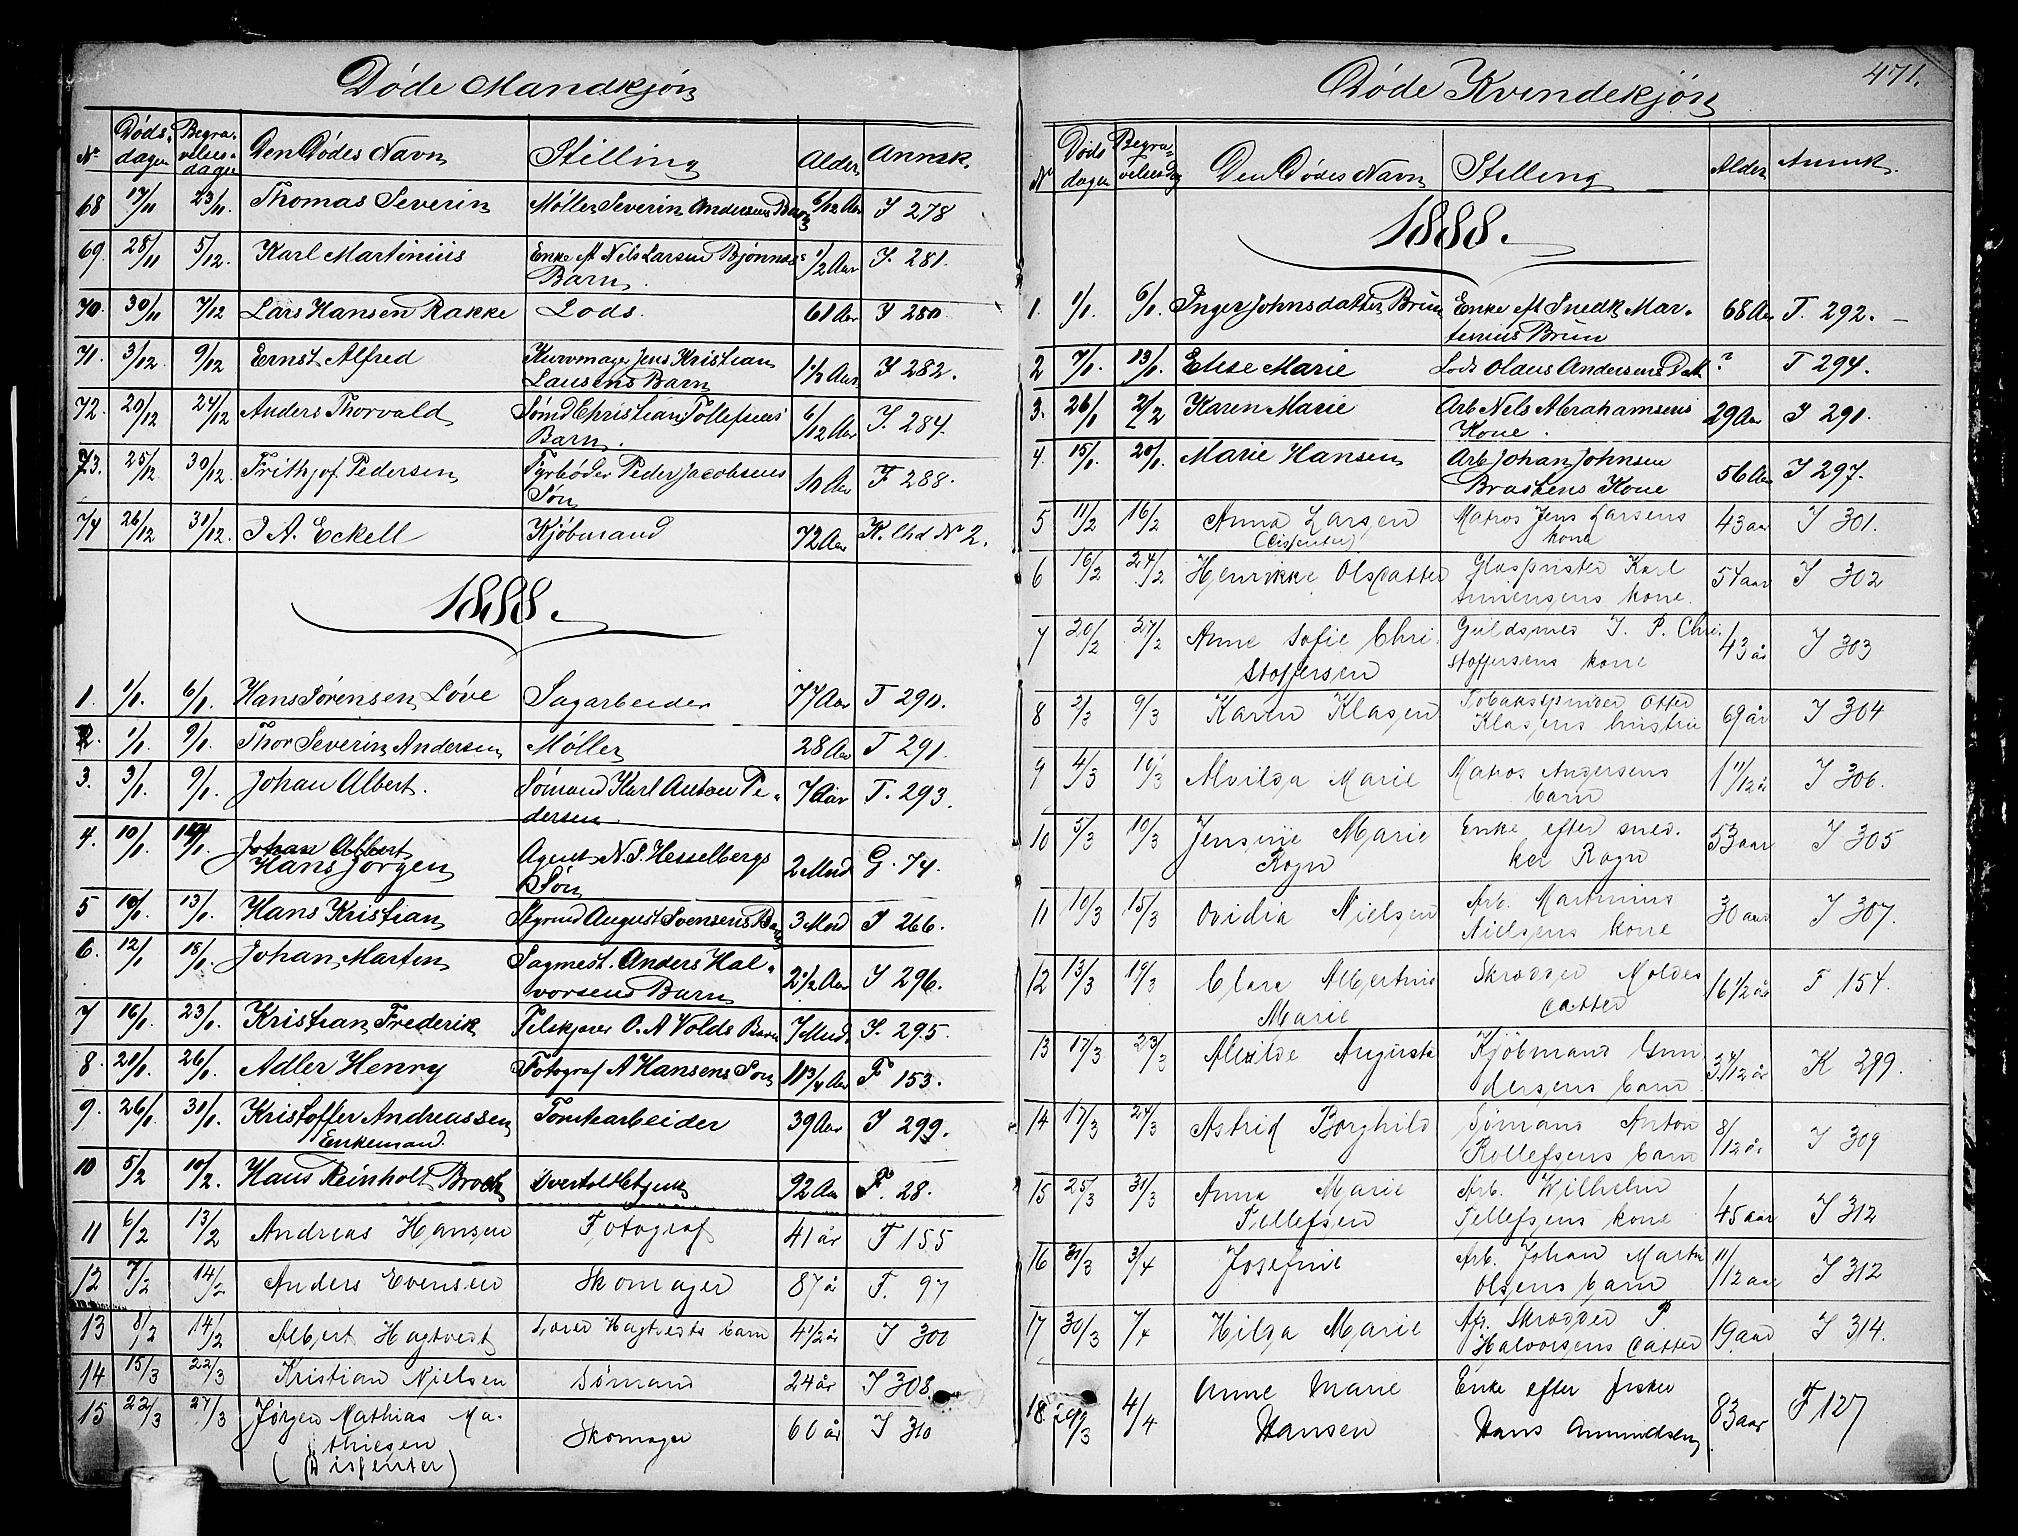 Døde Mandkjøn
No Døds-dagen Begra-velses-dagen Den Dødes Navn Stilling Alder Anmk.
68 17/11 23/11. Thomas Severin Møller Severin Andersens Barn 6/12 Aar I 278
69. 28/11 5/12. Karl Martinius Enke Nels Larsen
Barn. 1/2 Aar I. 281.
70. 30/11 7/12 Lars Hansen Rakke Lods. 61 Aar I 280
71. 3/12 9/12 Ernst Alfred Kurvmager Jens Kristian
Lausens Barn 1 1/2 Aar I 282.
72. 20/12 24/12 Anders Thorvald Sømd Christian Tollefsens
Barn. 6/12 Aar I. 284.
73. 25/12 30/12. Frithjof Pedersen Fyrbøder Peder Jacobsens
Søn 10 Aar F 288.
74 26/12 31/12. I A. Eckell Kjøbmand 72 Aar K. lhd No 2.
1888.
1. 1/1. 6/1. Hans Sørensen Løve Sagarbeider 74 Aar F 290.
2. 1/1. 9/1. Thor Severin Andersen Møller 28 Aar F 291.
3. 3/1. 9/1. Johan Albert. Sømand Karl Anton Pe-
dersen. 7 Aar F. 293.
4. 10/1. Johan Albert
Hans Jørgen Agent N. S. Hesselbergs
Søn 2 Mnd G. 74.
5 10/1. 13/1. Hans Kristian August Svensens Barn 3 Mnd I 266.
6. 12/1 18/1. Johan Marten Sagmest. Anders Hal-
vorsens Barn 2 1/2 Aar I 296.
7 16/1. 23/1. Kristian Frederik O. A Volds Barn 7 Mnd. I. 295.
8. 20/1. 26/1. Adler Henry Fotograf A Hansens Søn 11 3/4 Aar F 153.
9. 26/1. 30/1. Kristoffer Andreassen
Enkemand. Tomtearbeider 39 Aar I 299.
10 5/2 10/2. Hans Reinholt Broch Overtoldbetjent 92 Aar F. 28.
11 6/2 13/2 Andreas Hansen Fotograf 41 år F 155
12 7/2 14/2 Anders Evensen Skomager 87 år F. 97
13 8/2 14/2 Albert Hagtvedt Hagtvedts barn 4 1/2 år I 300
14 15/3 22/3 Kristian Nielsen Sømand 24 år I 308
15 22/3 27/3 Jørgen Mathias Ma-
thiesen
(Disenter) Skomager 60 år I 310
471.
Døde Kvindekjøn
No Døds dagen Begra-velsesdag Den Dødes Navn Stilling Alder Anmk.
1888.
1. 1/1. 6/1. Inger Johnsdatter Brun Enke Snedk Mar-
tinius Brun 68 Aar F. 292.
2 7/1. 13/1. Elise Marie Lods Olaus Andersens Datt ? F 294.
3. 26/1 2/2 Karen Marie Arb Nels Abrahamsens
Kone. 29 Aar I 291.
4. 15/1. 20/1. Marie Hansen Arb Johan Johnsen
Brastens Kone 56 Aar I 297.
5 11/2 16/2 Anna Larsen
(Disenter) Matros Jens Larsens
kone 43 aar I 301.
6 16/2 24/2 Henrikke Olsdatter Glaspuster Karl
kone. 54 aar I 302
7 20/2 27/2 Anne Sofie Chri-
stoffersen Guldsmed I. P. Chri-
stoffersens kone 43 år I 303
8 2/3 9/3 Karen Klasen Tobakspinder Otter
Klasens hustru 69 år I 304
9 4/3 10/3 Alvilda Marie Matros Andersens
barn 1 11/12 år I 306.
10 5/3 10/3 Jensine Marie
Rogn Enke efter sned-
ker Rogn 53 aar I 305
11 10/3 15/3 Ovidia Nielsen Arb. Martinius
Nielsens kone 30 aar I 307.
12 13/3 19/3 Clara Albertine
Marie Skrædder Moldes
datter 16 1/2 år F 154.
13 17/3 23/3 Alvilde Augusta Kjøbmand Gun
dersens barn 3 4/12 år K 299.
14 17/3 24/3 Astrid Borghild Sømand Anton
Rollefsens barn 8/12 år I 309
15 25/3 31/3 Anna Marie
Tellefsen Arb. Wilhelm
Tellefsens kone 45 aar I 312
16 31/3 3/4 Josefine Arb. Johan Martin
Olsens barn 11/12 aar I 312
17 30/3 7/4 Hilda Marie Afd. Skrædder P.
Halvorsens datter 19 aar I 314.
18. 29/3 4/4 Anne Marie
Hansen Enke efter fisker
Hans Amundsen 83 aar F 127